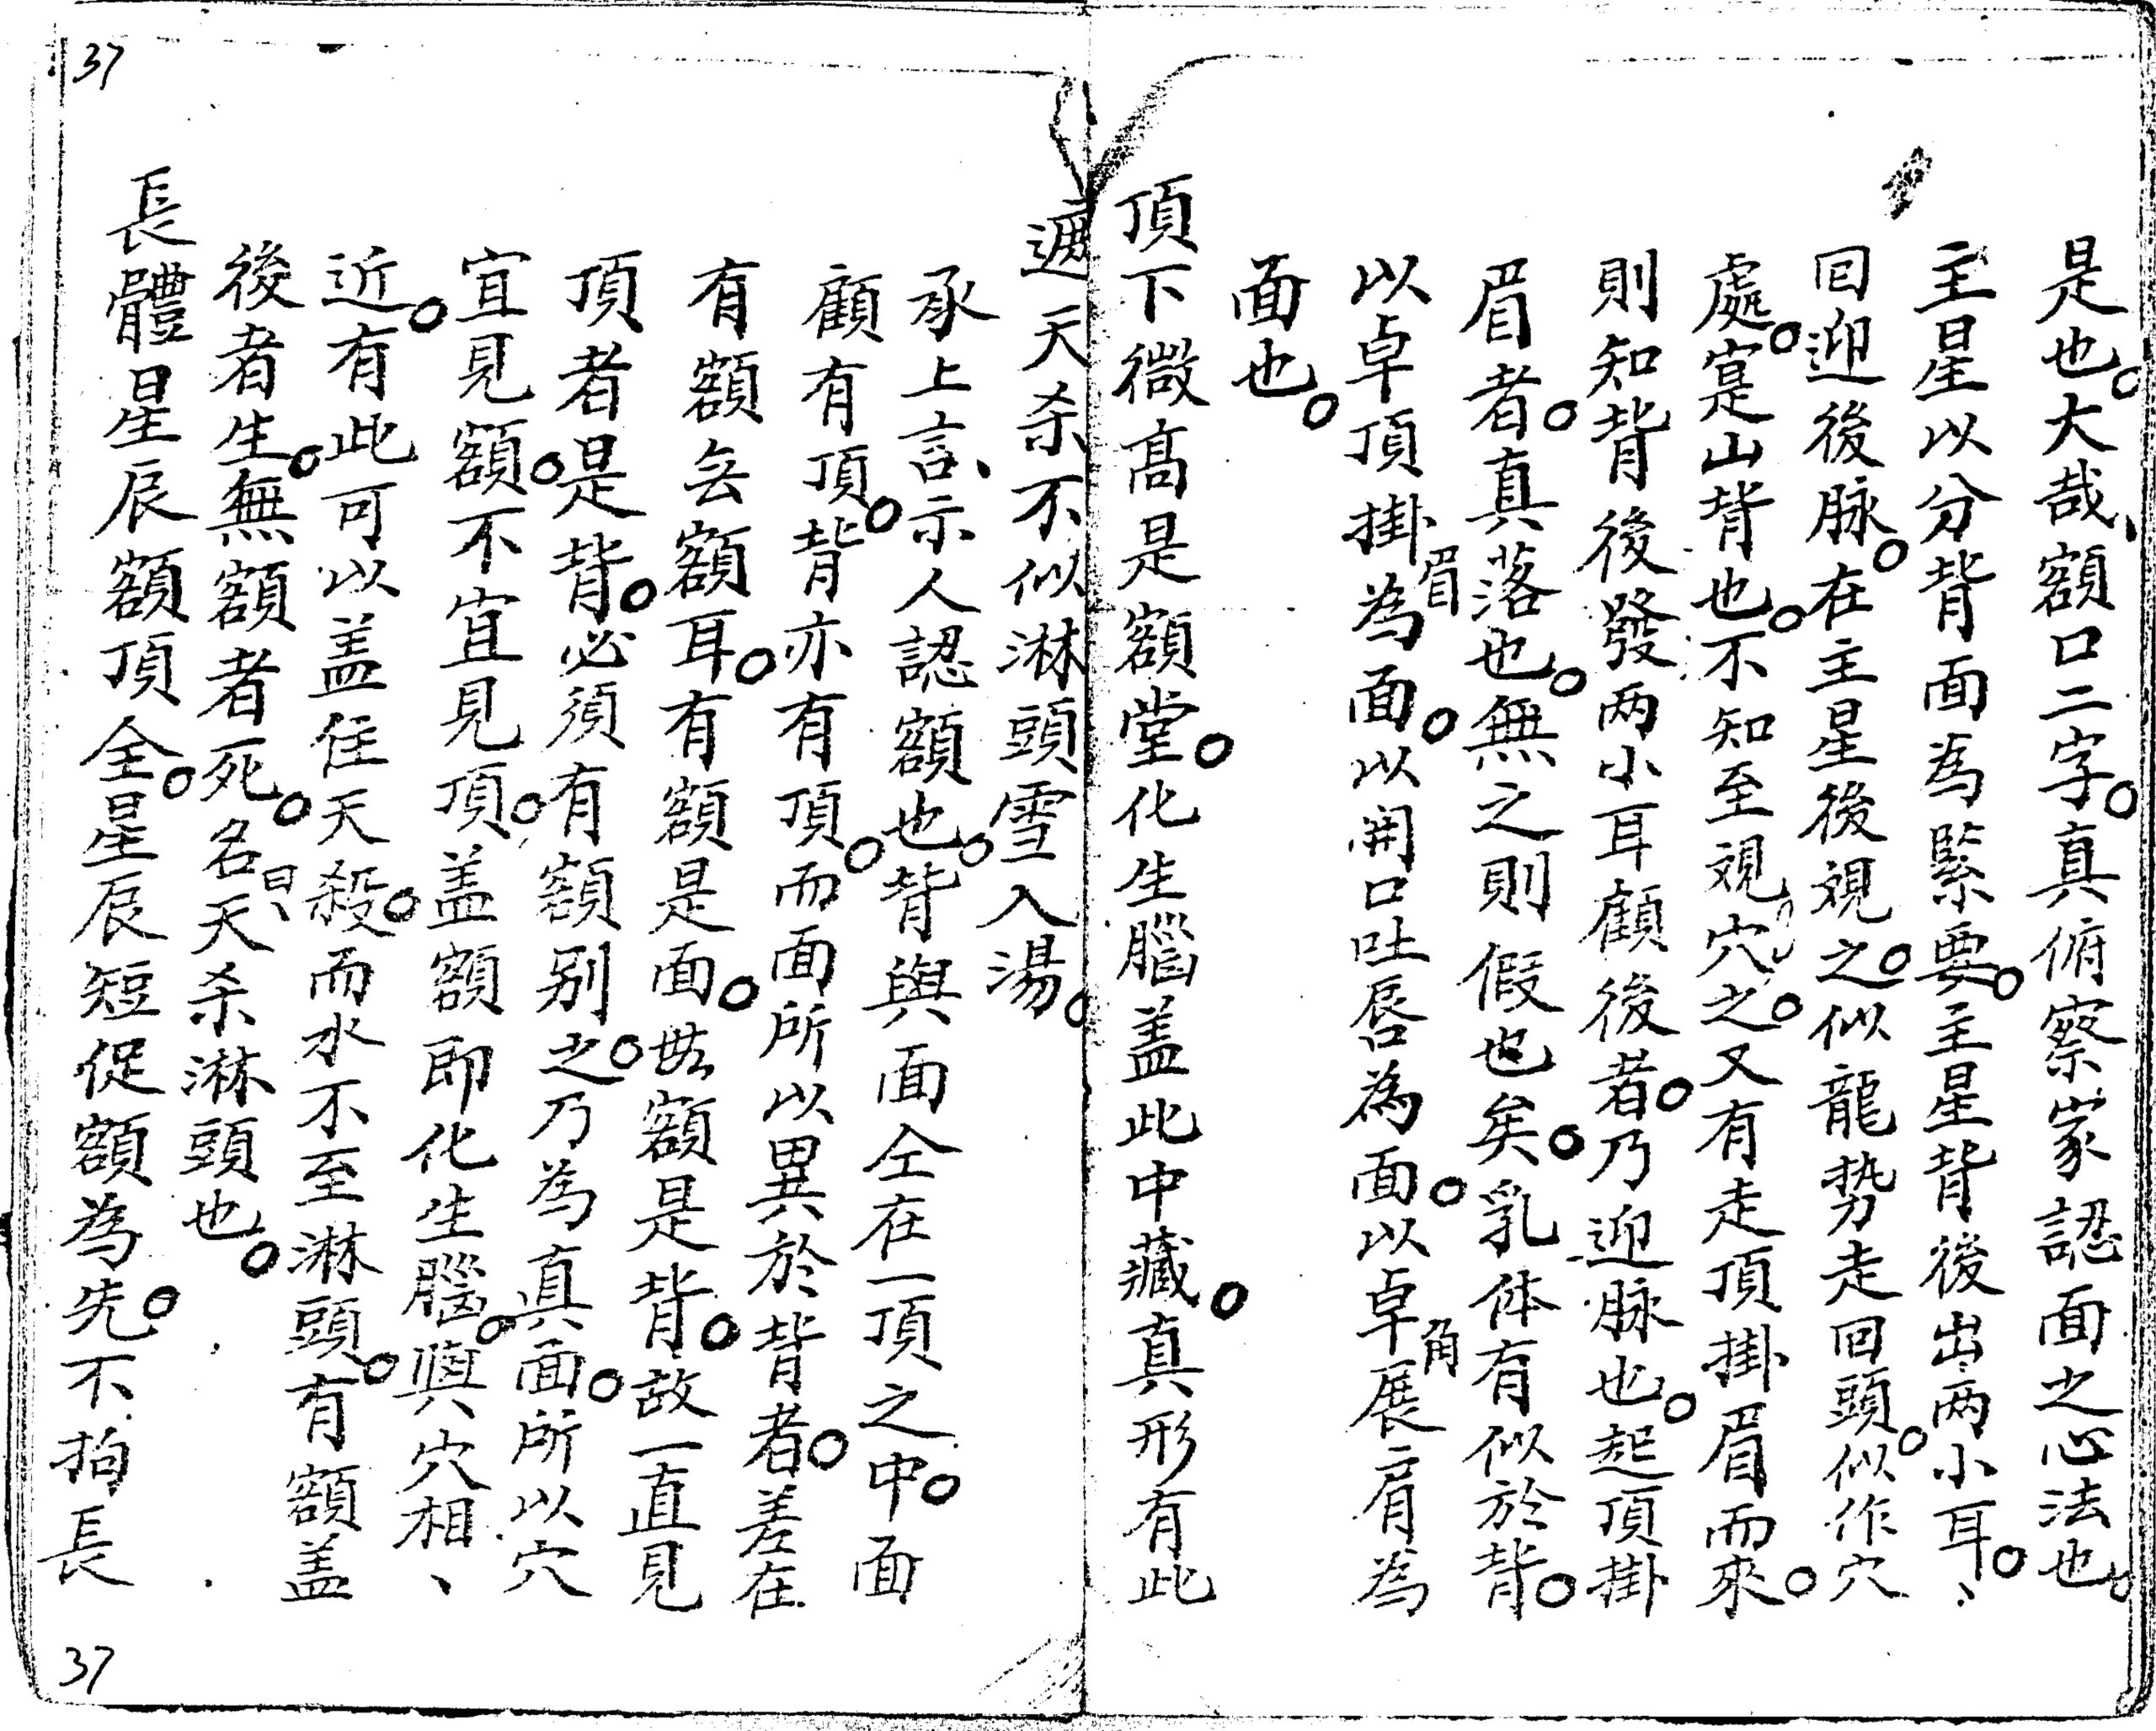 是也。大哉、額口二字。真俯察家認面之心法也。
主星以分背面為緊要。主星背後出两小耳。、
回迎後脉。在主星後視之。似龍势走回頭。似作穴
處。寔山背也。不知至視穴之。又有走頂掛眉而來。
則知背後發两小耳顧後者。乃迎脉也。起頂掛
眉者。真落也。無之則假也矣。乳体有似於背。
以卓頂掛眉為面。以開口吐唇為面。以卓角展肩為
面也。
頂下微高是額堂。化生腦盖此中藏。真形有此
遮天杀不似淋頭雪入湯。
承上言、示人認額也。背與面仝在一頂之中。面
顧有頂。背亦有頂。而面所以異於背者。差在
有額无額耳。有額是面。毋額是背。故一直見
頂者是背。必須有額别之。乃為真面。所以穴
宜見額。不宜見頂。盖額即化生腦。與穴相、
近。有此可以盖住天殺。而水不至淋頭。有額盖
後者生。無額者死。名曰、天杀淋頭也。
長體星辰額頂全。星辰短促額為先。不拘長
37
37